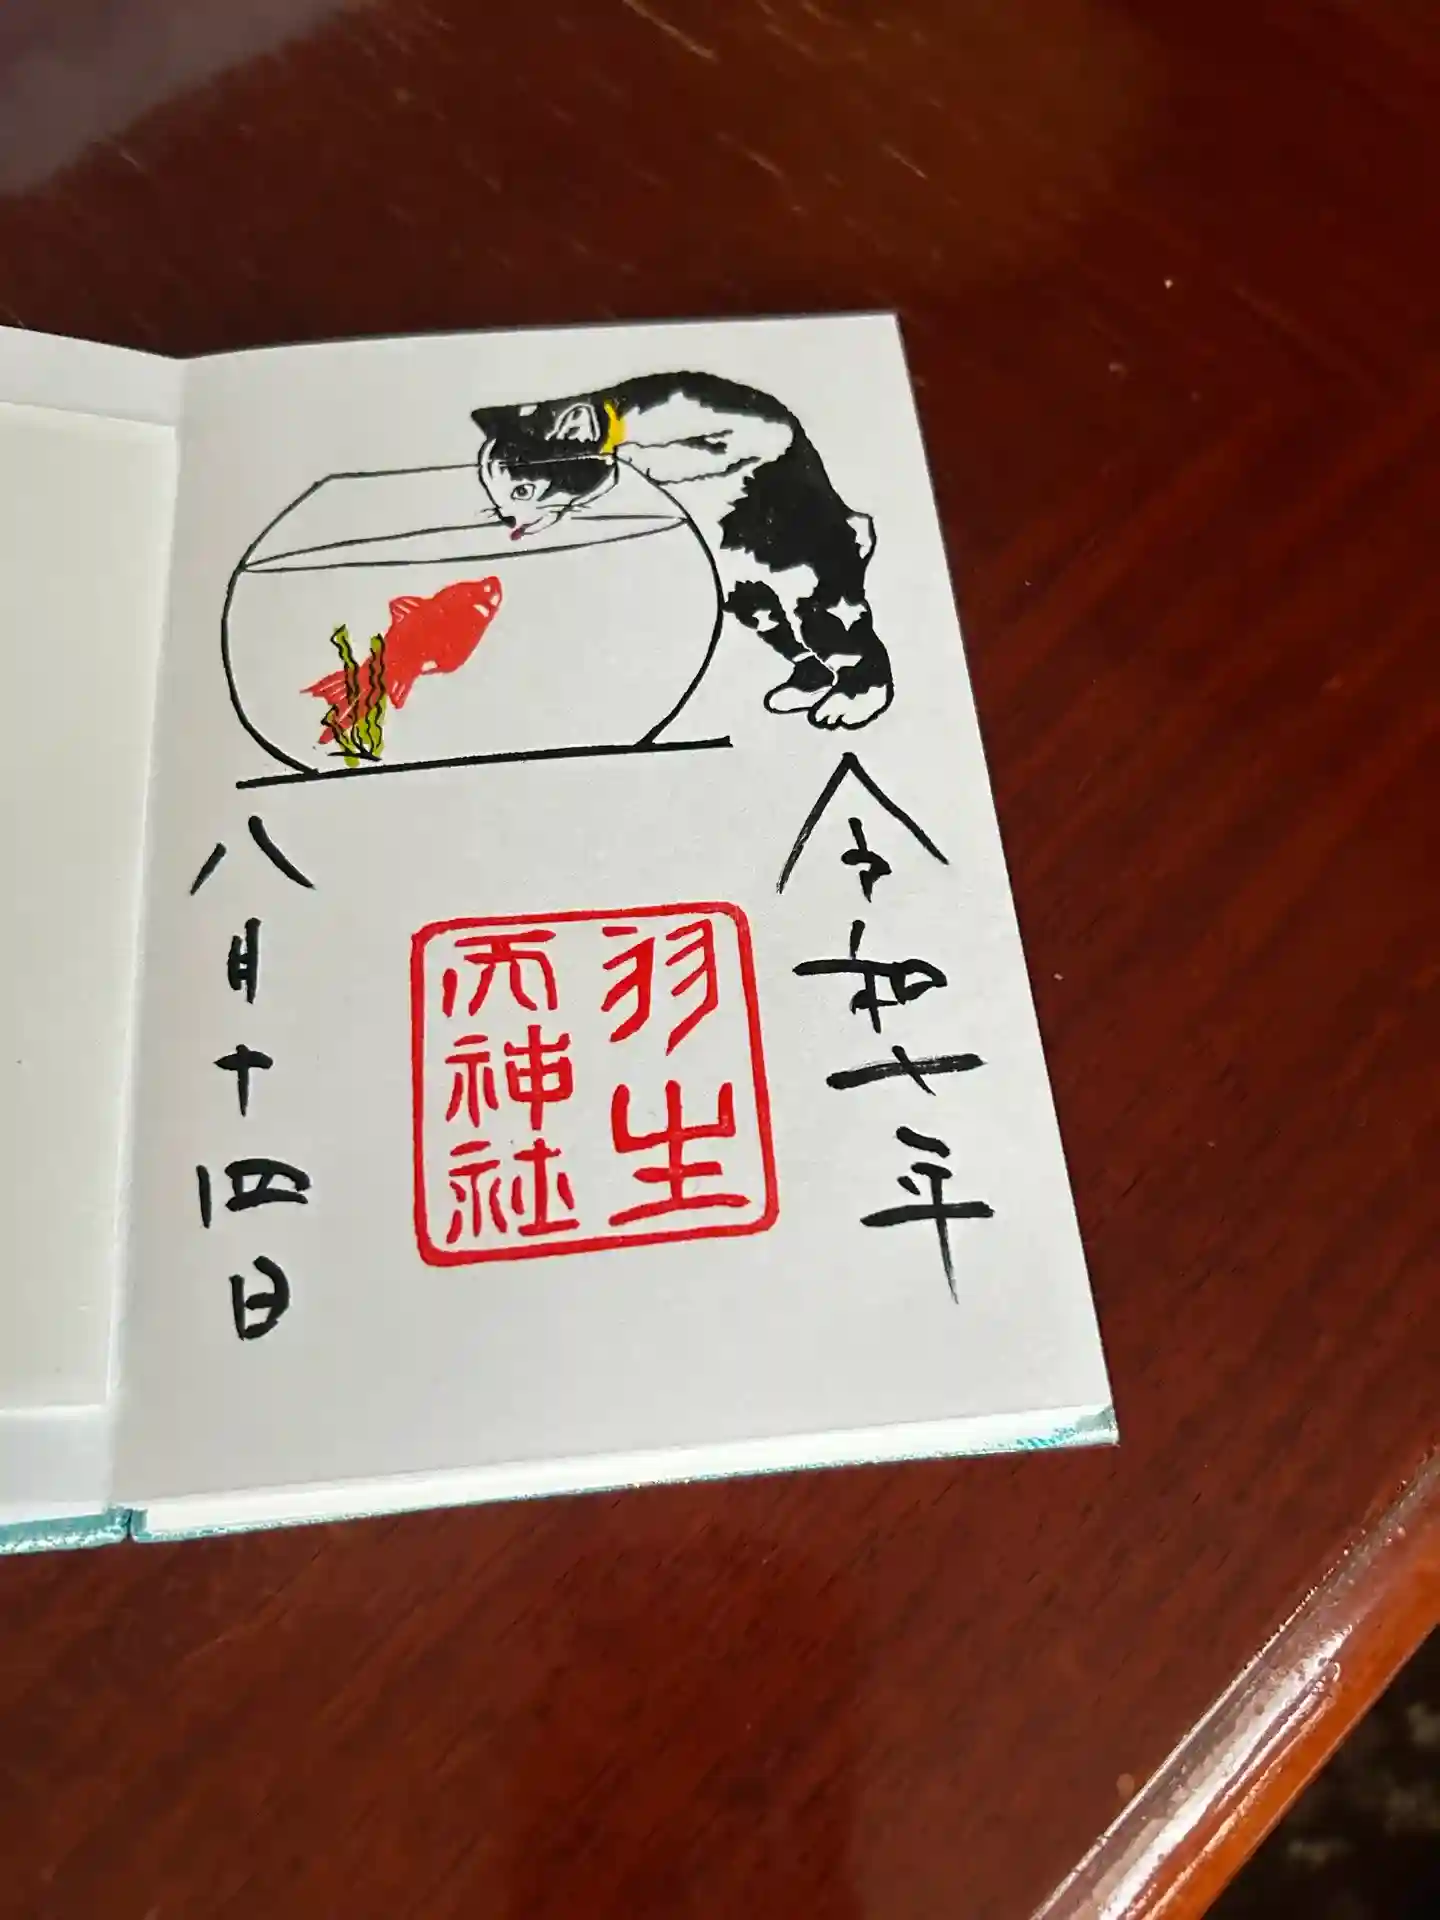 令和七年
羽生
天神社
八月十四日